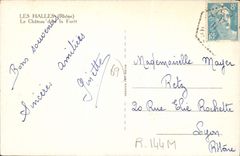 LES HALLES (Rhône)
Le Château dans la Forêt
Bons souvenirs
Sincères amitiés
Ginette
Mademoiselle Mayer
20 Rue Elie Rochette
Lyon
Rhône
R.144M